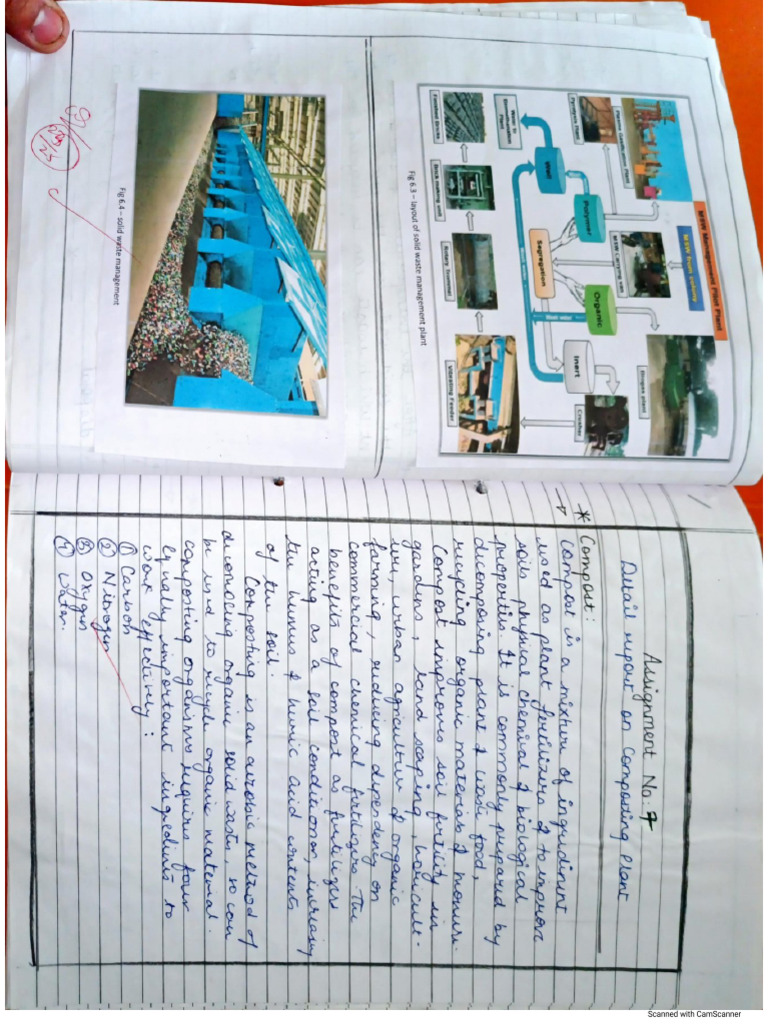 MSW Management Pilot Plant
MSW from colony
Plasma Gasification Plant
Pyrolysis Plant
MSW Carrying van
Biogas plant
Polymer
Organic
Wet
Segregation
Inert
Crusher
Water to
Plant
Finished Bricks
Brick making unit
Rotary Trommel
Vibrating Feeder
Fig 6.3 – layout of solid waste management plant
Fig 6.4 – solid waste management
Assignment No: 7
Detail report on Composing Plant
* Compost:
→ Compost is a mixture of ingridient
used as plant fertilizers & to improve
soils physical chemical & biological
properties. It is commonly prepared by
dicomposing plant & waste food,
recycling organic materials & manure.
Compost improves soil fertility in
gardens, land scaping, horticult-
ure, urban agriculture & organic
farming, reducing dependency on
commercial chemical fertilizers. The
benefits of compost as fertilizers
acting as a soil conditioner, increasing
the humus & humic acid contents
of the soil.
Composting is an aerobic method of
dicomposing organic solid waste, so can
be used to recycle organic material.
composting organisms requires four
equally important ingredients to
work effectively:
① Carbon
② Nitrogen
③ Oxygen
④ Water.
Scanned with CamScanner